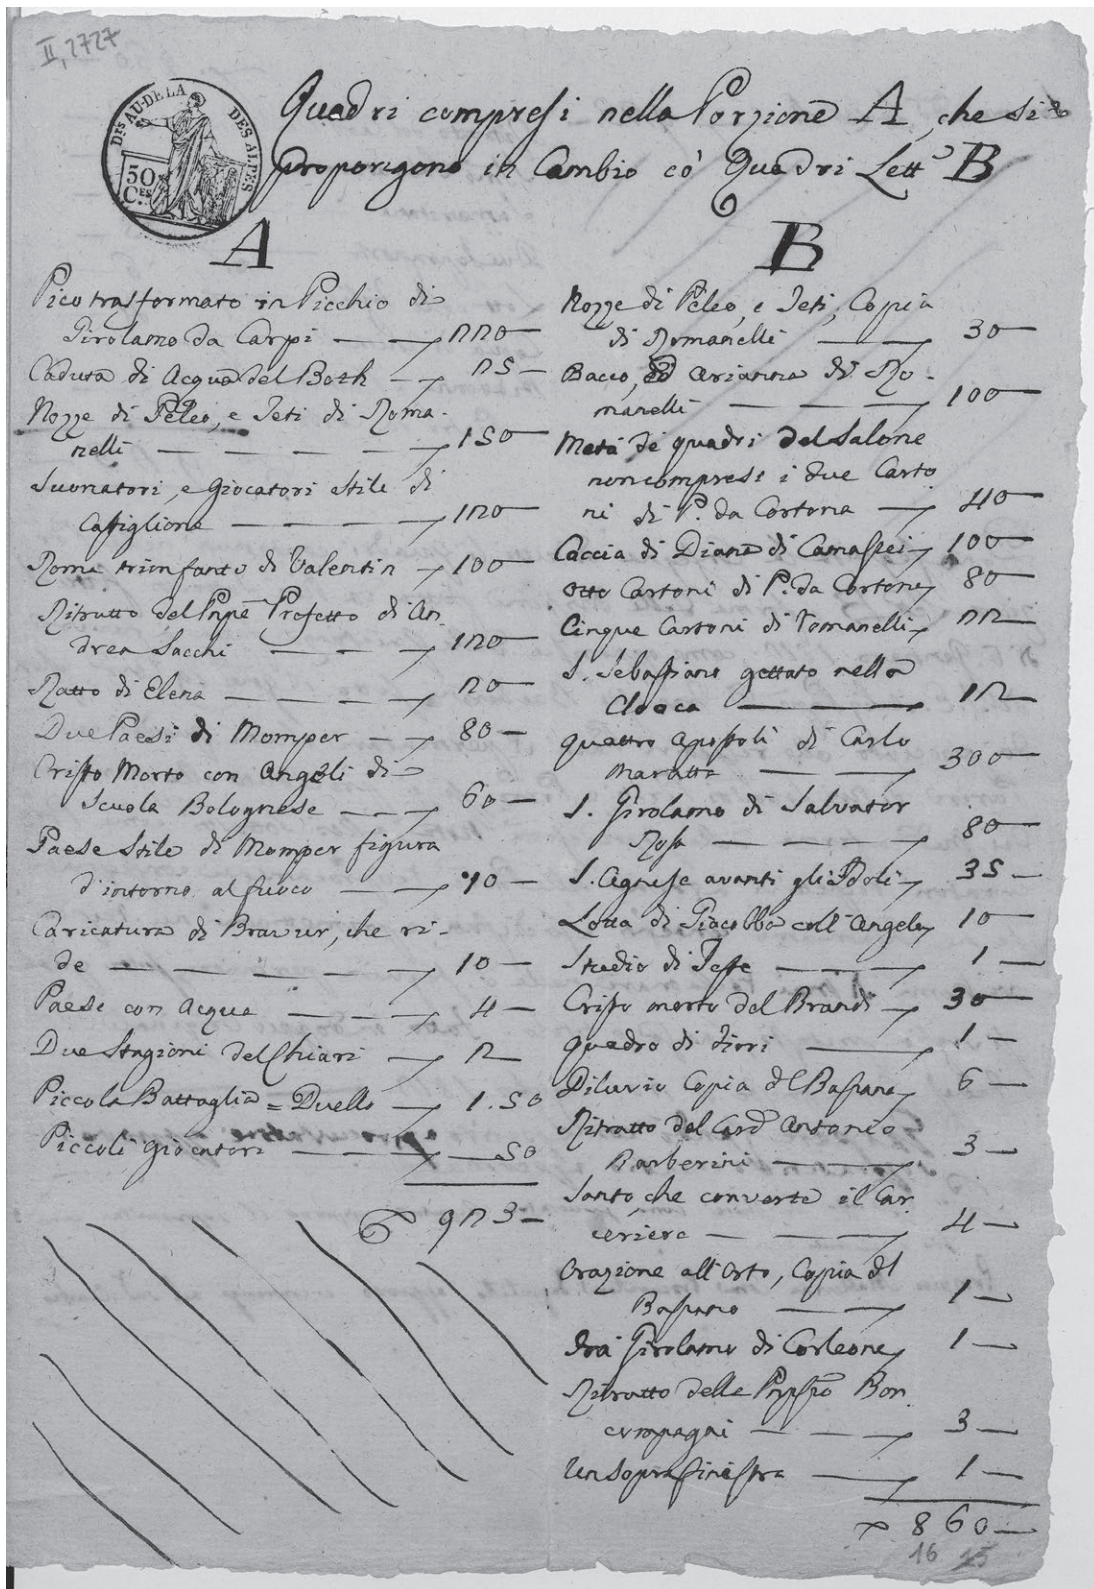 II, 2727
DIS. AU-DE LA DES ALPES
50 CES
C.
Quadri compresi nella Porzione A, che si
propongono in Cambio co' Quadri Lett.ª B
A
Pico trasformato in Picchio di
Girolamo da Carpi — — 220—
Caduta di Acqua del Both — 25—
Nozze di Peleo, e Teti di Roma-
nelli — — — — — 150—
Suonatori, e Giocatori stile di
Castiglione — — — — 120—
Roma trionfante di Valentin — 100—
Ritratto del Pnpe Prefetto di An-
drea Sacchi — — — 120—
Ratto di Elena — — — — 20—
Due Paesi di Momper — — 80—
Cristo Morto con Angeli di
Scuola Bolognese — — — 60—
Paese stile di Momper figura
d'intorno al fuoco — — 10—
Caricatura di Brawer, che ri-
de — — — — — — 10—
Paese con Acqua — — — — 4—
Due Stagioni del Chiari — 2—
Piccola Battaglia = Duello — 1.50
Piccoli Giocatori — — — —.50
923—
B
Nozze di Peleo, e Teti, Copia
di Romanelli — — 30—
Bacco, ed Arianna di Ro-
manelli — — — — 100—
Metà de quadri del Salone
non compresi i due Carto
ni di P. da Cortona — 40—
Caccia di Diana di Camassei 100—
Otto Cartoni di P. da Cortona 80—
Cinque Cartoni di Romanelli 22—
S. Sebastiano gettato nella
Cloaca — — — 12—
Quattro Apostoli di Carlo
Maratta — — 300—
S. Girolamo di Salvator
Rosa — — — — 80—
S. Agnese avanti gli Idoli 35—
Lotta di Giacobbe coll'Angelo 10—
Studio di Teste — — — 1—
Cristo morto del Brandi 30—
Quadro di Fiori — — 1—
Diluvio Copia dl Bassano 6—
Ritratto del Card Antonio
Barberini — — — 3—
Santo, che converte il Car-
ceriere — — — — 4—
Orazione all'Orto, Copia dl
Bassano — — 1—
Frà Girolamo di Corleone 1—
Ritratto della Pnpssa Bon
compagni — — — 3—
Un Soprafinestra — — 1—
860—
16 15